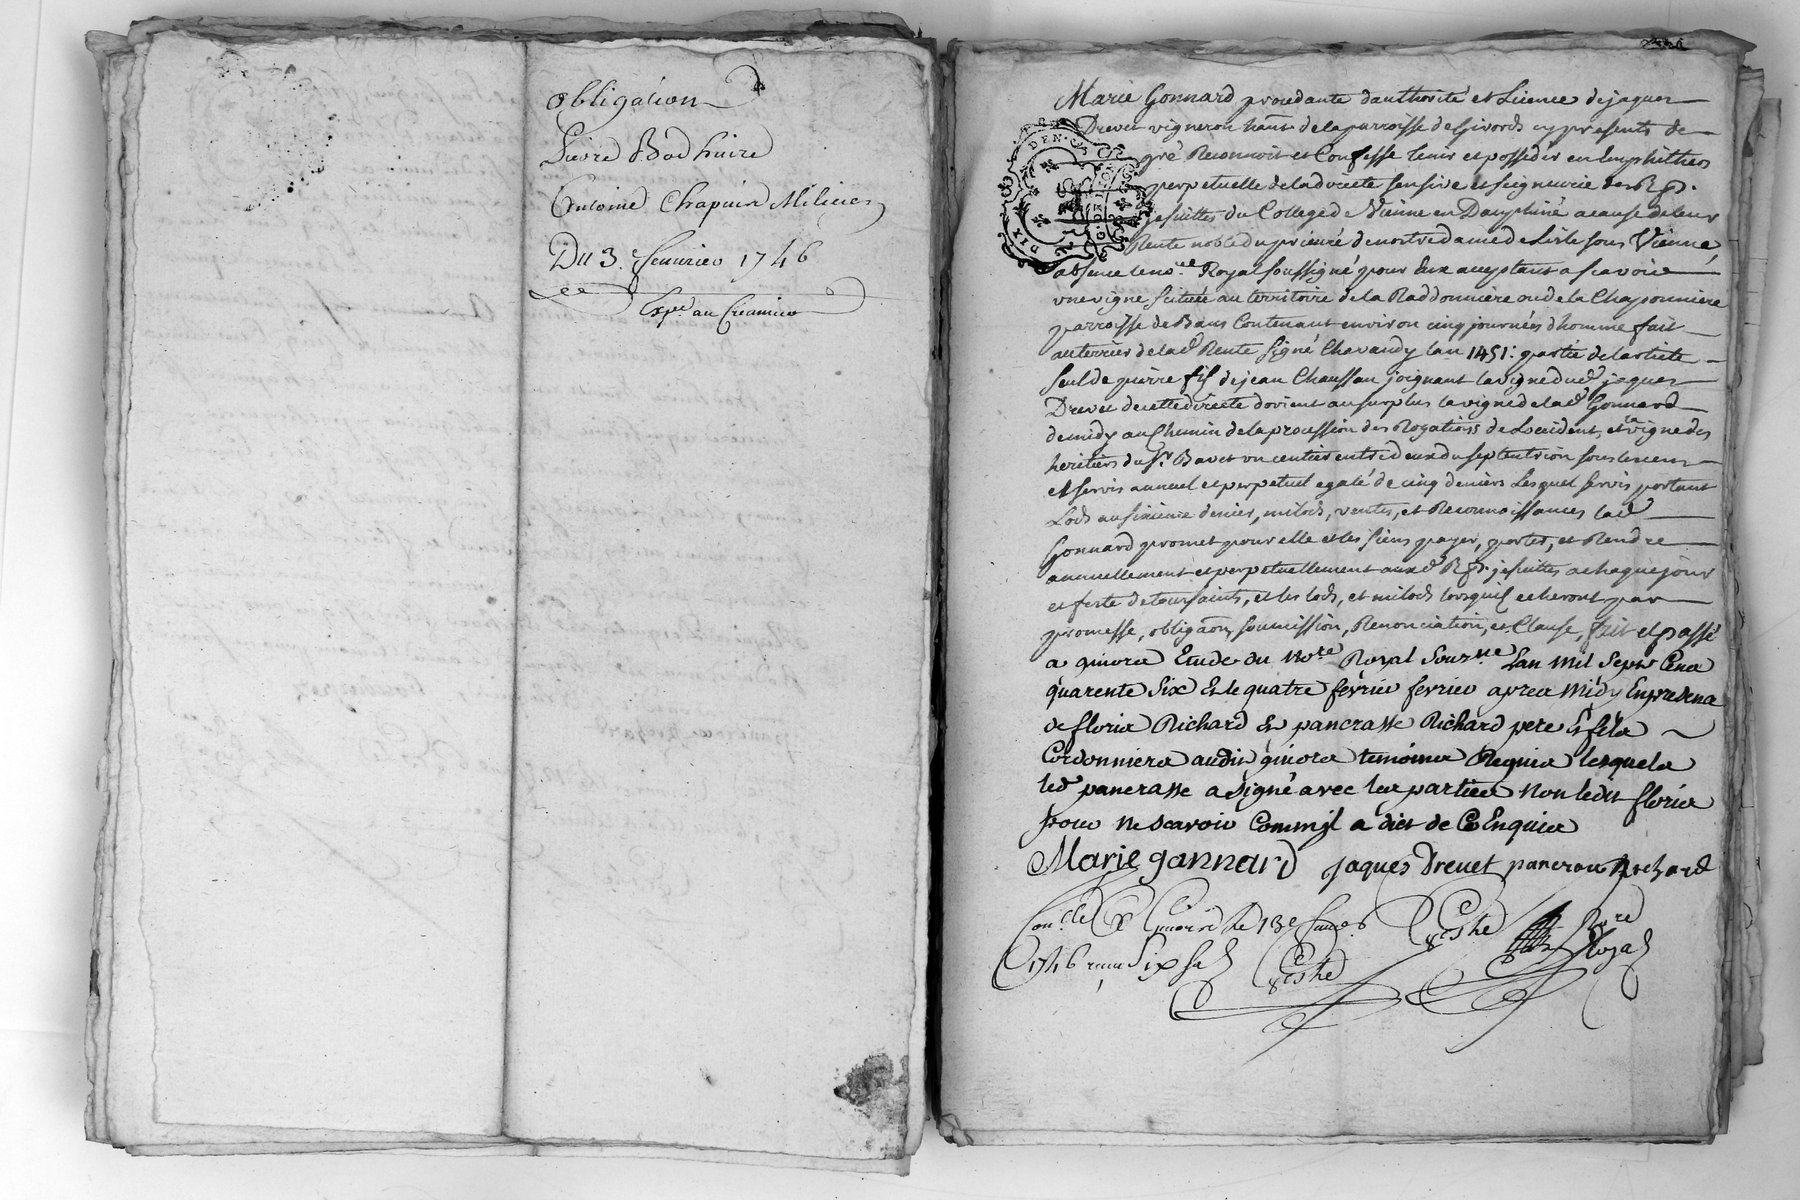 Obligation
Pierre Badhuire
Antoine Chapuis Milicien
Du 3. Feuvrier 1746
Exp.é au Creancier
Marie Gonnard procedante dauthorité et Licence de jaques
Drevet vigneron hant de la parroisse de Givords cy presents de
gré Reconnoit et Confesse tenir et posséder en Emphitheos
perpetuelle de la directe sensive et seigneurie des R. P.
jesuittes du College de Vienne en Dauphiné a cause de leur
Rente noble du prieuré de nostre dame de Lisle sous Vienne
absents le no.re Royal soussigné pour Eux acceptant a scavoir
une vigne scituée au territoire de la Raddonniere ou de la Chaponniere
parroisse de Bans Contenant environ cinq journées dhomme fait
au terrier de lad. Rente Signé Chavandy lan 1451: partie de larticle
seul de guierre fils de jean Chaussan joignant la vigne dud. jaques
Drevet de cette directe dorient au surplus la vigne de lad. Gonnard
de midy au Chemin de la procession des Rogations de Loccident, et la vigne des
heritiers du Sr. Bavet un centier entre deux du septentrion sous le cens
et servis annuel et perpetuel egalé de cinq deniers Lesquel servis portant
Lods au sixieme denier, milods, ventes, et Reconnoissances lad.
Gonnard promet pour elle et les siens payer, porter, et Rendre
annuellement et perpetuellement auxd. R. P. jesuittes a chaque jour
et feste de toussaints, et les lods, et milods lorsquil echeront par
promesse, obligaõn, soumission, Renonciation, et Clause, fait et passé
a givors Etude du no.re Royal Sous.né Lan mil Sept Cens
quarente Six Et le quatre fevrier fevrier apres Midy En presens
de floris Richard Et pancrasse Richard pere Et fils
Cordonniers audit givors temoins Requis lesquels
led pancrasse a Signé avec les parties non ledit floris
pour ne Scavoir Comm'jl a dict de Ce Enquis
Marie gannard jaques Drevet pancrasse Richard
Con.lé a Givors le 13e feuvr
1746 reçu Six s.
No.re
Royal